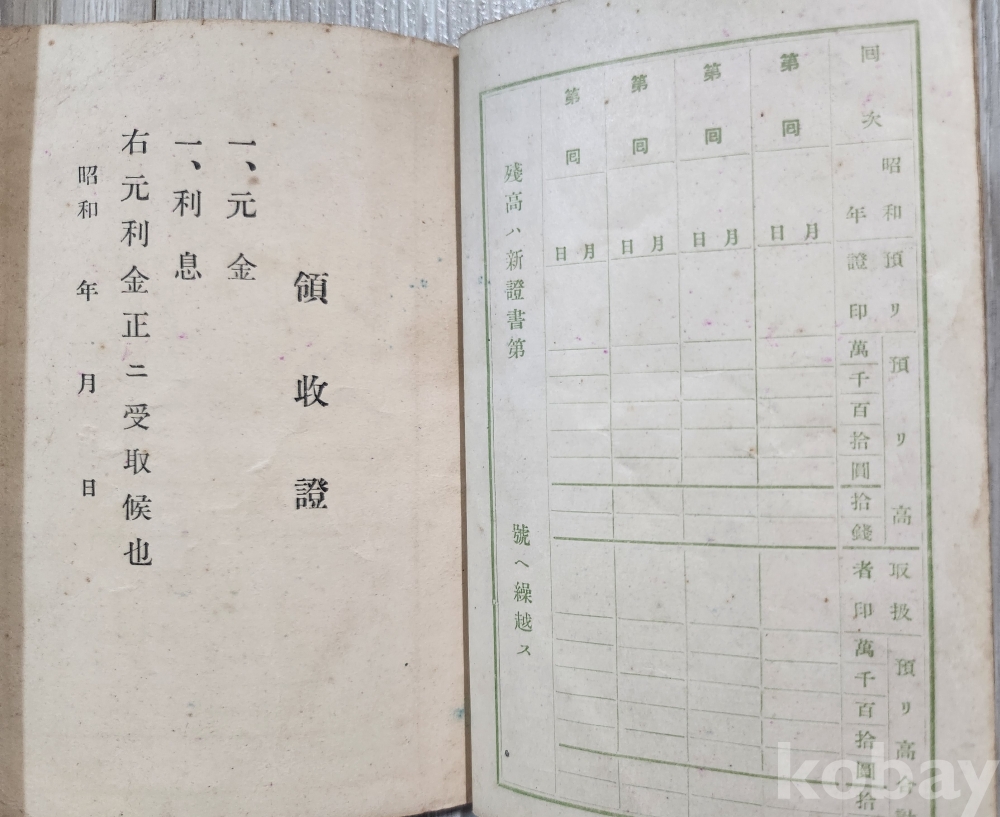 回次
昭和年
預リ證印
預リ高
萬千百拾圓拾錢
取扱者印
預リ高合計
萬千百拾圓拾
第 回 月 日
第 回 月 日
第 回 月 日
第 回 月 日
殘高ハ新證書第 號ヘ繰越ス
領收證
一、元金
一、利息
右元利金正ニ受取候也
昭和 年 月 日
kobay